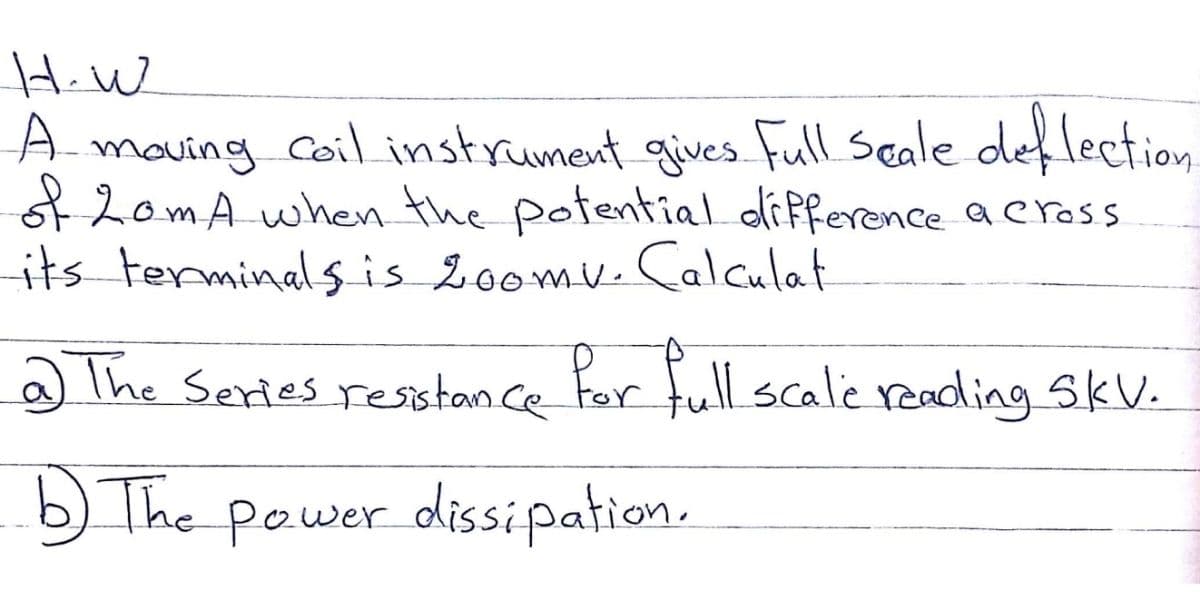 H.W
A moving Coil instrument gives Full Scale deflection
of 20mA when the potential difference across
its terminals is 200mv. Calculat
a) The Series resistance For full scale reading 5kV.
b) The power dissipation.